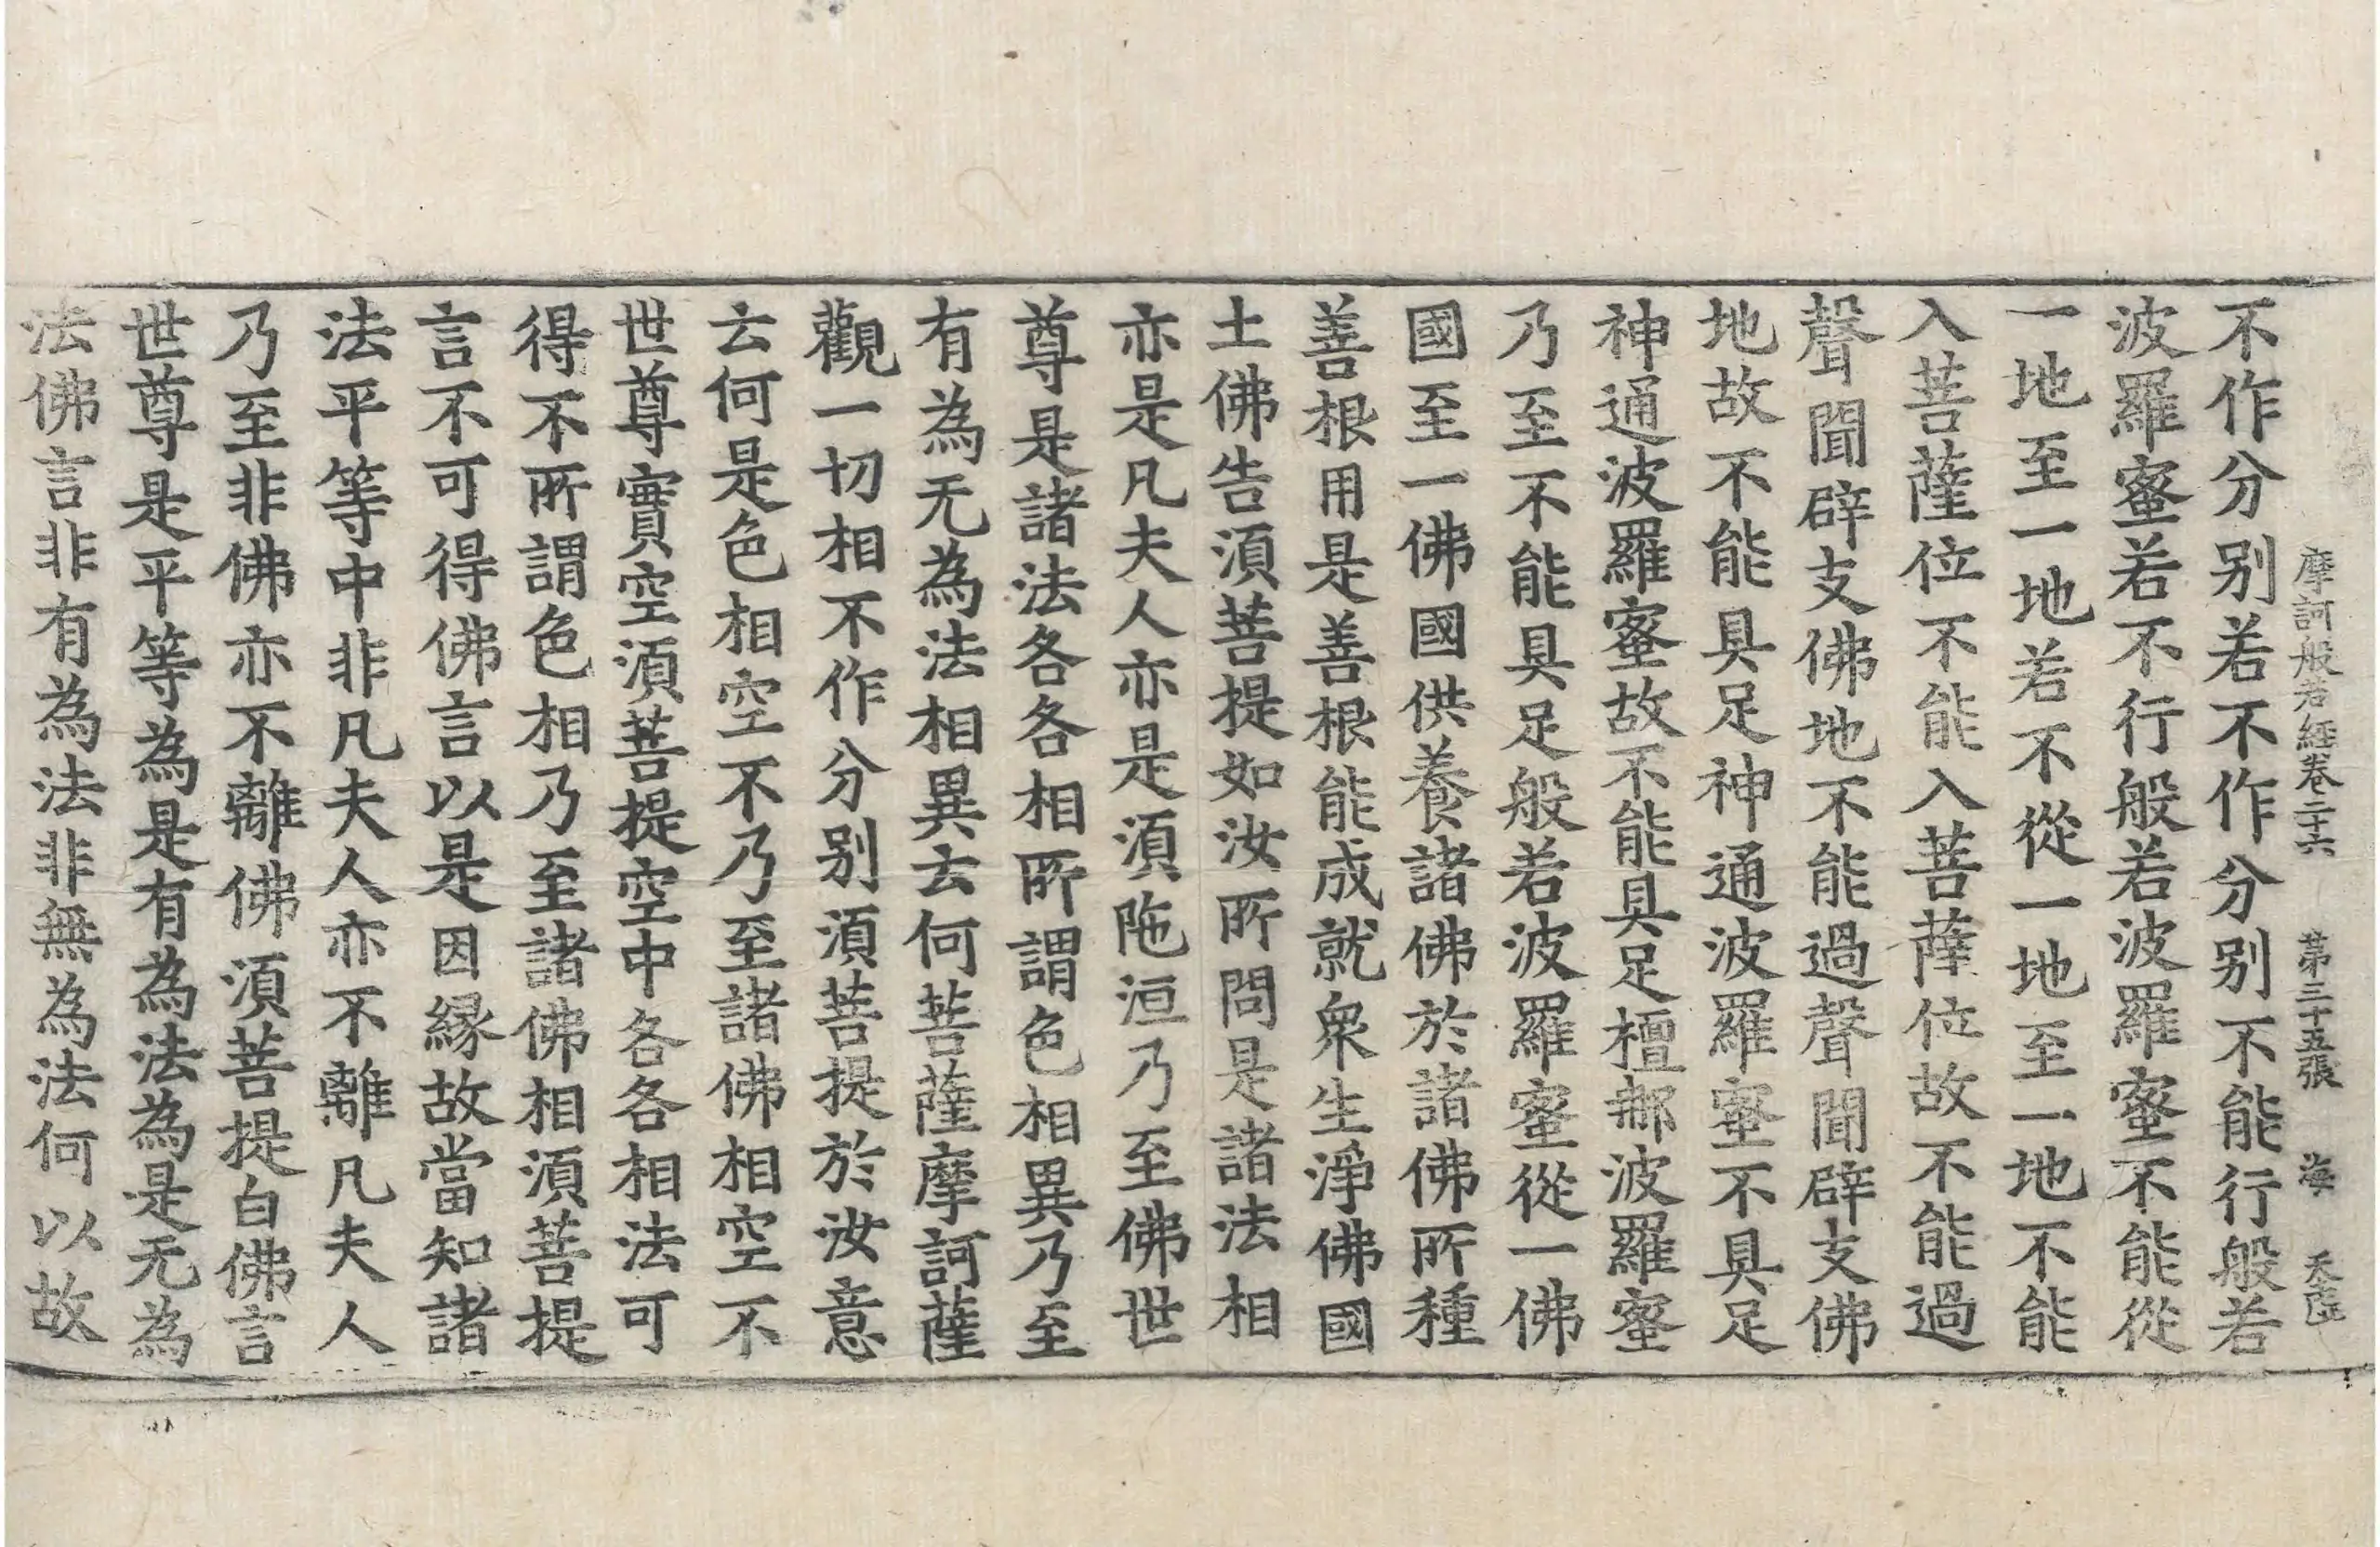 摩訶般若經卷二十六 第三十五張 海 天隂
不作分別若不作分別不能行般若
波羅蜜若不行般若波羅蜜不能從
一地至一地若不從一地至一地不能
入菩薩位不能入菩薩位故不能過
聲聞辟支佛地不能過聲聞辟支佛
地故不能具足神通波羅蜜不具足
神通波羅蜜故不能具足檀那波羅蜜
乃至不能具足般若波羅蜜從一佛
國至一佛國供養諸佛於諸佛所種
善根用是善根能成就衆生淨佛國
土佛告湏菩提如汝所問是諸法相
亦是凡夫人亦是湏陁洹乃至佛世
尊是諸法各各相所謂色相異乃至
有為无為法相異云何菩薩摩訶薩
觀一切相不作分別湏菩提於汝意
云何是色相空不乃至諸佛相空不
世尊實空湏菩提空中各各相法可
得不所謂色相乃至諸佛相湏菩提
言不可得佛言以是因緣故當知諸
法平等中非凡夫人亦不離凡夫人
乃至非佛亦不離佛湏菩提白佛言
世尊是平等為是有為法為是无為
法佛言非有為法非無為法何以故